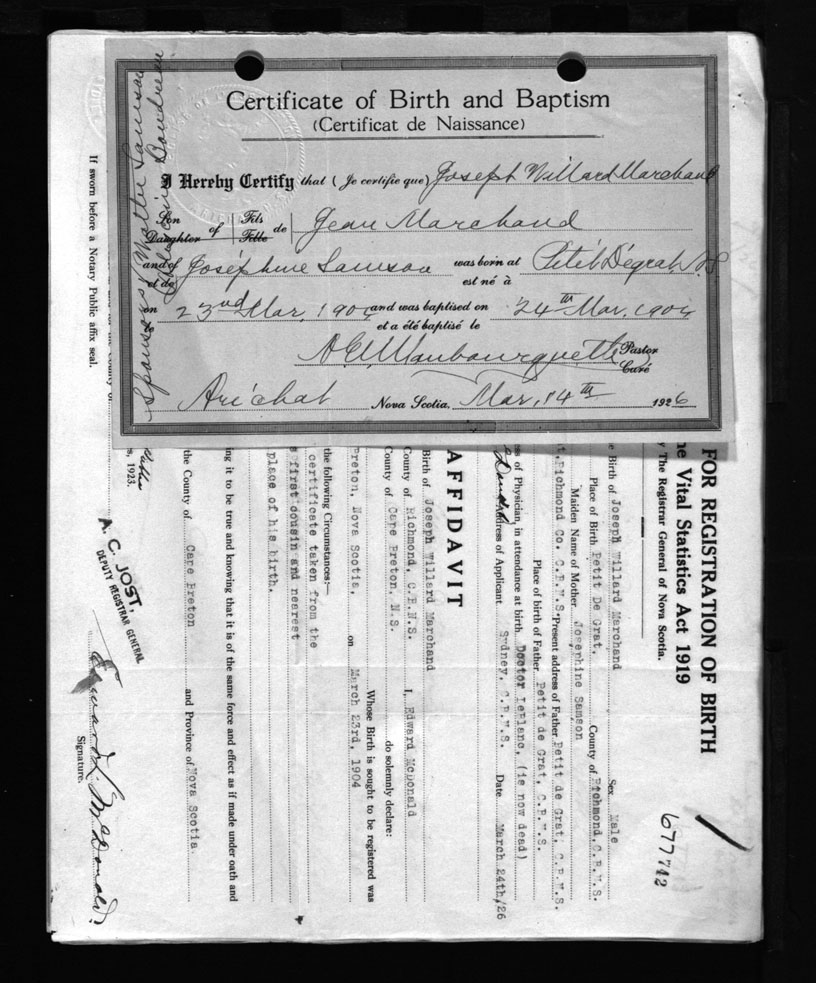 Certificate of Birth and Baptism
(Certificat de Naissance)
I Hereby Certify that (Je certifie que) Joseph Willard Marchand
Son Daughter of Fils Fille de Jean Marchand
and of et de Joséphine Samson was born at est né à Petit Dégrat, N S
on 23rd Mar, 1904 and was baptised on et a été baptisé le 24th Mar, 1904
Pastor
Curé
Arichat Nova Scotia, Mar, 14th 1926
Sponsors Samson
FOR REGISTRATION OF BIRTH
Vital Statistics Act 1919
The Registrar General of Nova Scotia.
677742
Birth of Joseph Willard Marchand Sex Male
Place of Birth Petit De Grat, County of Richmond, C.B.N.S.
Maiden Name of Mother Josephine Samson
Richmond Co. C.B.N.S. Present address of Father Petit de Grat, C.B.N.S.
Place of birth of Father. Petit de Grat, C.B.N.S.
of Physician, in attendance at birth. Doctor LeBlanc, (is now dead)
Address of Applicant Sydney, C.B.N.S. Date March 24th/26
AFFIDAVIT
Birth of Joseph Willard Marchand
County of Richmond, C.B.N.S. I, Edward McDonald
County of Cape Breton, N.S. do solemnly declare:
Whose Birth is sought to be registered was
Breton, Nova Scotia, on March 23rd, 1904
the following Circumstances:—
certificate taken from the
first cousin and nearest
place of his birth.
it to be true and knowing that it is of the same force and effect as if made under oath and
the County of Cape Breton and Province of Nova Scotia.
1923.
A. C. JOST,
DEPUTY REGISTRAR GENERAL
Edward L. McDonald
Signature.
If sworn before a Notary Public affix seal.